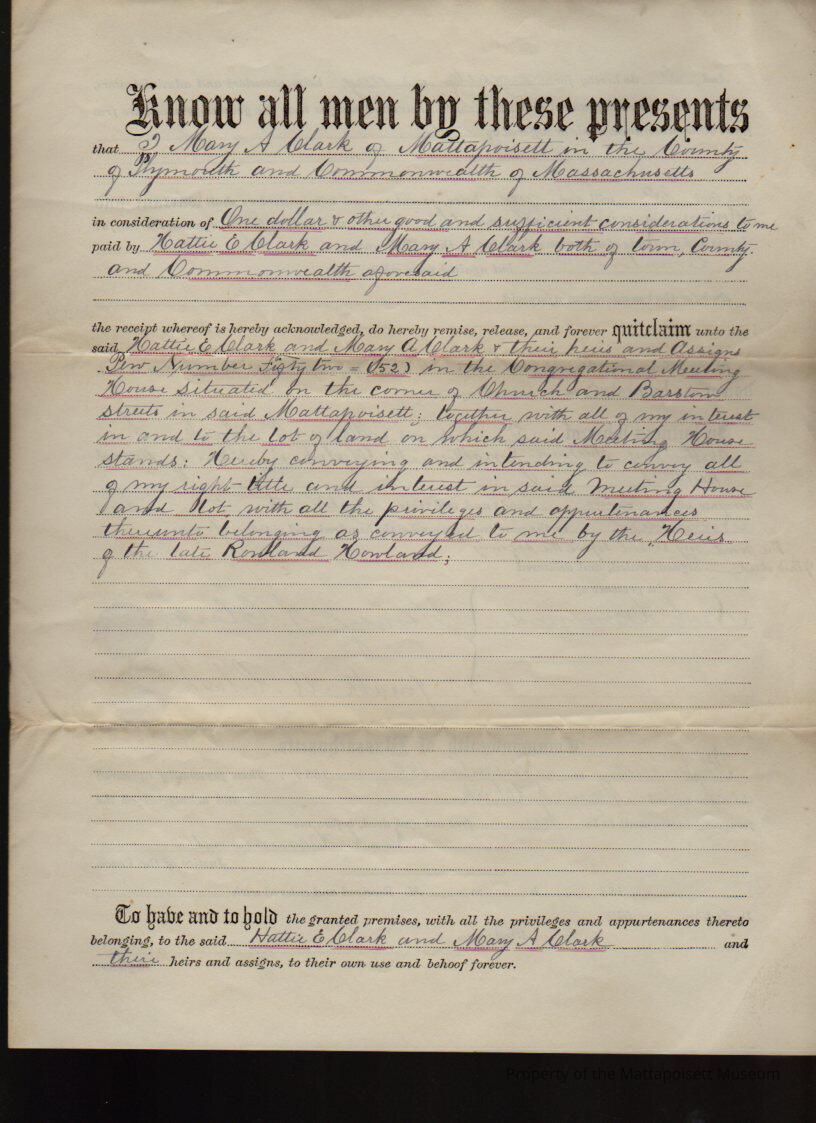 Know all men by these presents
that I Mary A Clark of Mattapoisett in the County
of Plymouth and Commonwealth of Massachusetts
in consideration of One dollar & other good and sufficient considerations to me
paid by Hattie E Clark and Mary A Clark both of town, County
and Commonwealth aforesaid
the receipt whereof is hereby acknowledged, do hereby remise, release, and forever quitclaim unto the
said Hattie E Clark and Mary A Clark & their heirs and Assigns
Pew Number Fifty two = (52) in the Congregational Meeting
House situated on the corner of Church and Barstow
streets in said Mattapoisett; together with all of my interest
in and to the Lot of land on which said Meeting House
stands: Hereby conveying and intending to convey all
of my right title and interest in said Meeting House
and Lot with all the privileges and appurtenances
thereunto belonging as conveyed to me by the Heirs
of the late Rowland Howland;
To have and to hold the granted premises, with all the privileges and appurtenances thereto
belonging, to the said Hattie E Clark and Mary A Clark and
their heirs and assigns, to their own use and behoof forever.
Property of the Mattapoisett Museum